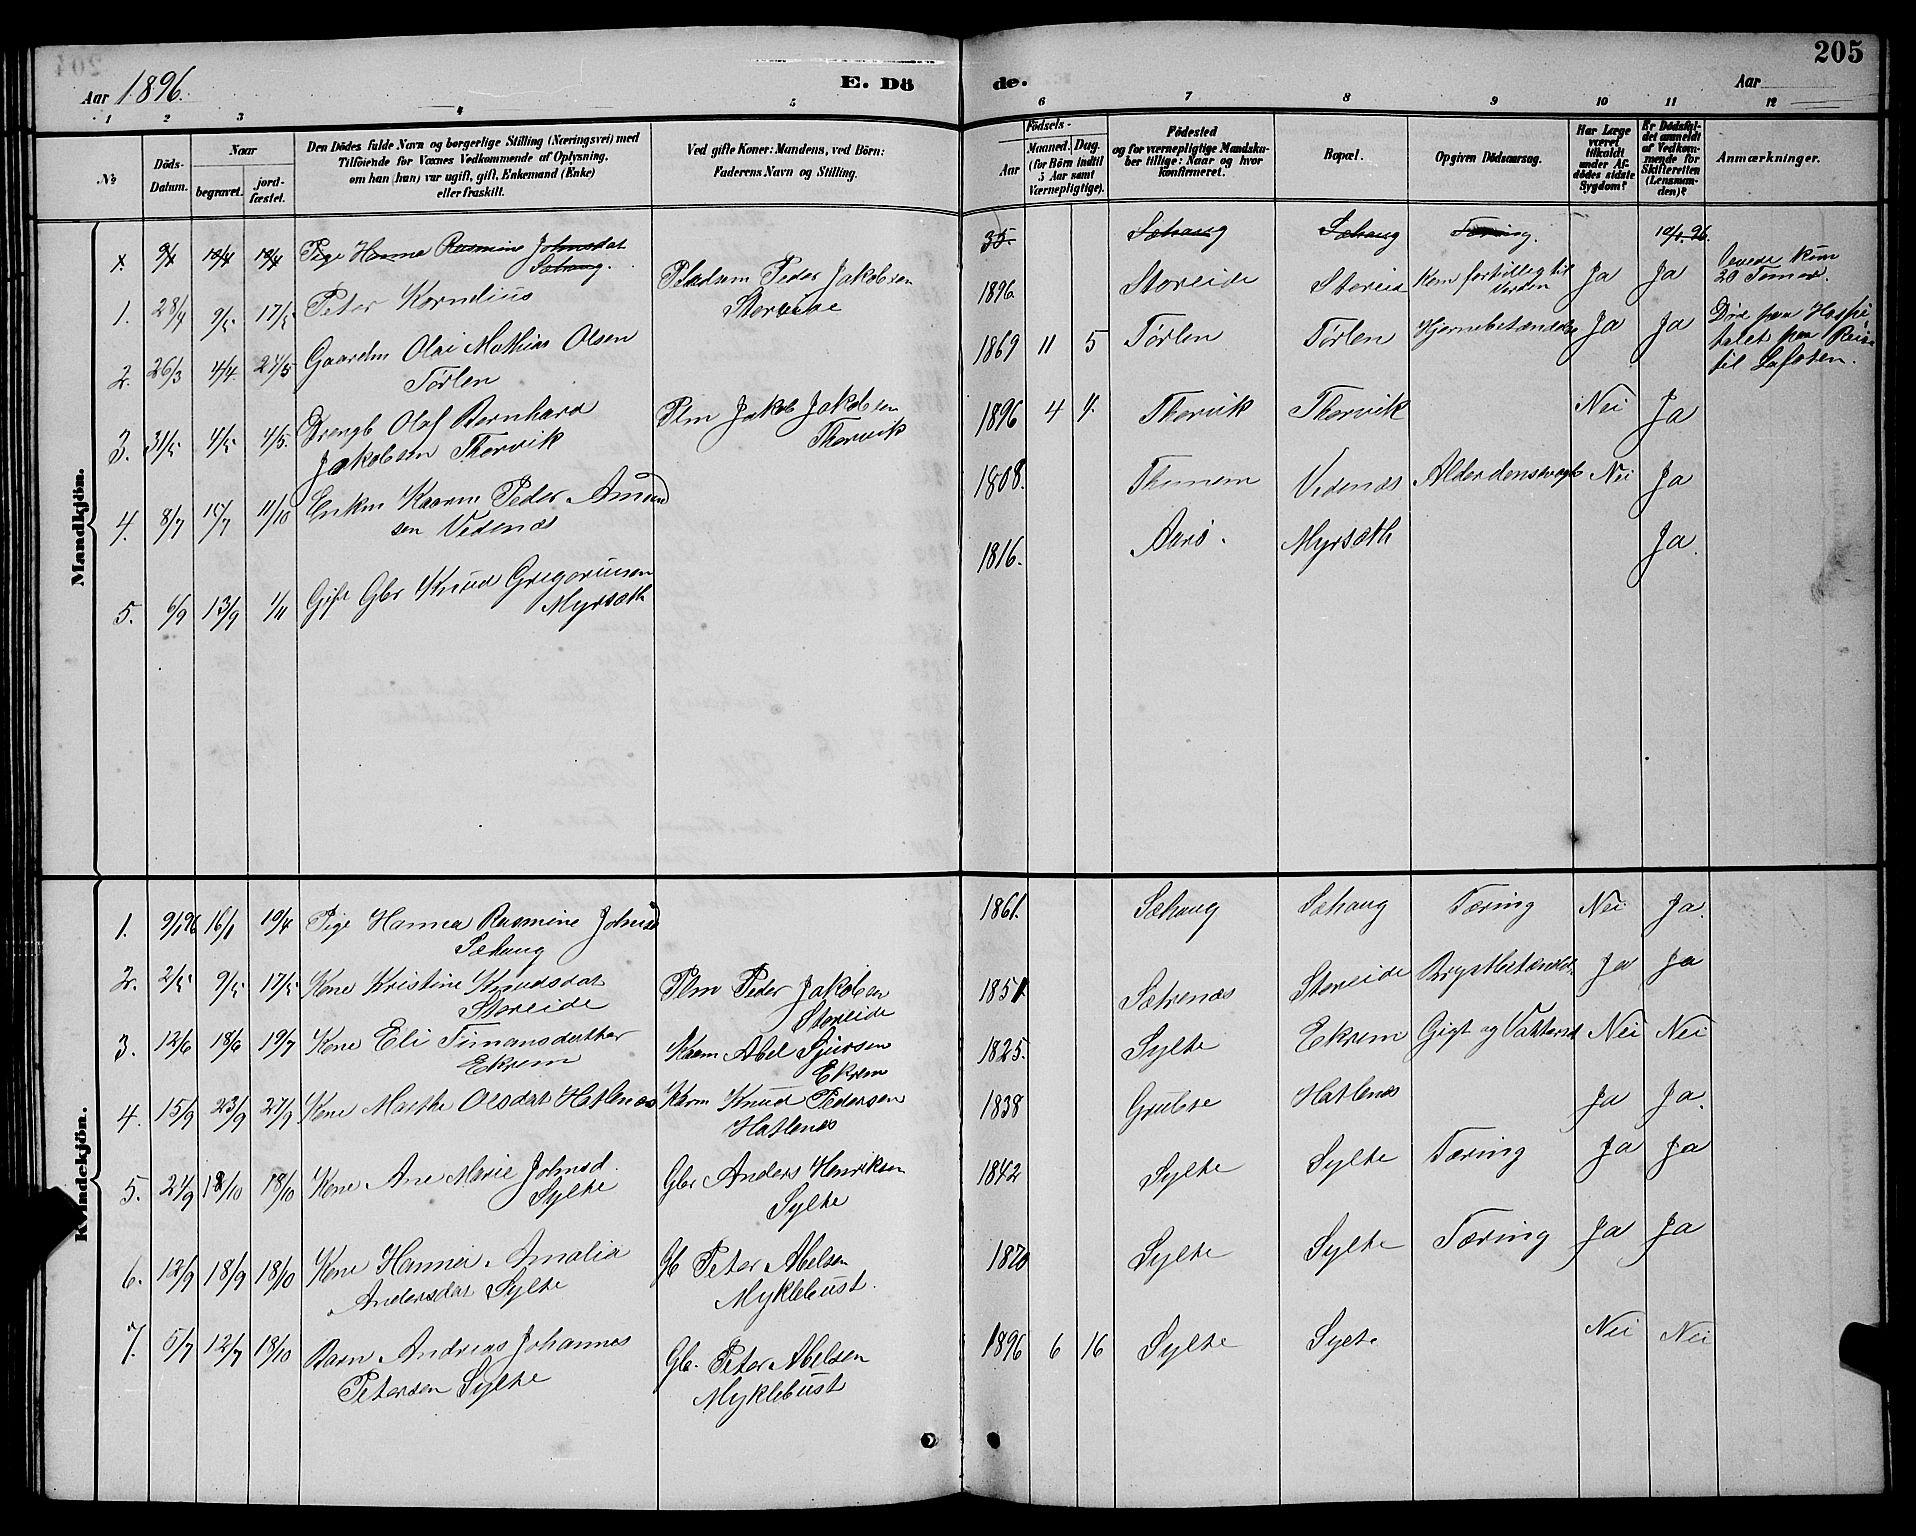 205
Aar 1896.
E. Dö
de.
Aar
1 2 3 4 5 6 7 8 9 10 11 12
№
Döds-
Datum.
Naar
begravet.
jord-
fæstet.
Den Dödes fulde Navn og borgerlige Stilling (Næringsvei) med
Tilföiende for Voxnes Vedkommende af Oplysning,
om han (hun) var ugift, gift, Enkemand (Enke)
eller fraskilt.
Ved gifte Koner: Mandens, ved Börn:
Faderens Navn og Stilling.
Födsels-
Aar
Maaned. Dag.
(for Börn indtil
5 Aar samt
Værnepligtige).
Födested
og for værnepligtige Mandska-
ber tillige: Naar og hvor
konfirmeret.
Bopæl.
Opgiven Dödsaarsag.
Har Læge
været
tilkaldt
under Af-
dödes sidste
Sygdom?
Er Dödsfal-
det anmeldt
af Vedkom-
mende for
Skifteretten
(Lensman-
den)?
Anmærkninger.
Mandkjön.
x. 9/1 19/4 19/4 Pige Hanna Rasmine Johnsdat Sæhaug. 35. Sæhaug Sæhaug Tæring. 10/1. 96.
1. 28/4 9/5 17/5 Peter Kornelius Pladsm Peder Jakobsen
Storeide 1896 Storeide Storeide Kom fortidlig til
Verden Ja Ja levede kun
20 Timer.
2. 26/3 4/4. 24/5 Gaardm Olai Mathias Olsen
Tørlen 1869 11 5 Tørlen Tørlen Hjernebetændelse Ja Ja Døde paa Hospi
talet paa Reise
til Lofoten.
3. 31/5 4/5 4/5. Drengb Olaf Bernhard
Jakobsen Thorvik Plm Jakob Jakobsen
Thorvik 1896 4 4. Thorvik Thorvik Nei Ja
4. 8/7 15/7 11/10 Enkm Kaarm Peder Amund
sen Vedenæs 1808. Vedenæs Alderdomssvaghe Nei Ja
5. 6/9 13/9 1/11 Gift Gbr Knud Gregoriusen
Myrsæth 1816. Aarø. Myrsæth Ja.
Kvindekjön.
1. 9/1 96 16/1 19/4 Pige Hanna Rasmine Johnsd
Sæhaug 1861. Sæhaug Sæhaug Tæring Nei Ja.
2. 2/5 9/5 17/5 Kone Kristine Knudsdat
Storeide Plm Peder Jakobsen
Storeide 1851. Sætrenæs Storeide Brystbetændels Ja Ja
3. 12/6 18/6 19/7 Kone Eli Timansdatter
Ekrem Kaarm Abel Sjursen
Ekrem 1825. Sylte Ekrem Gigt og Vattersot Nei Nei
4. 15/9 23/9 27/9 Kone Marthe Olsdat Hatlenæs Karm Knud Pedersen
Hatlenæs 1838 Hatlenæs Ja Ja.
5. 24/9 18/10 18/10 Kone Ane Marie Johnsd.
Sylte Gbr Anders Henriksen
Sylte 1842 Sylte Sylte Tæring Ja Ja
6. 12/9 18/9 18/10 Kone Hanna Amalia
Andersdat Sylte Gb Peter Abelsen
Myklebust. 1870 Sylte Sylte Tæring Ja Ja
7. 5/7 12/7 18/10 Barn Andreas Johannes
Petersen Sylte Gb. Peter Abelsen
Myklebust 1896 6 16 Sylte Sylte Nei Nei